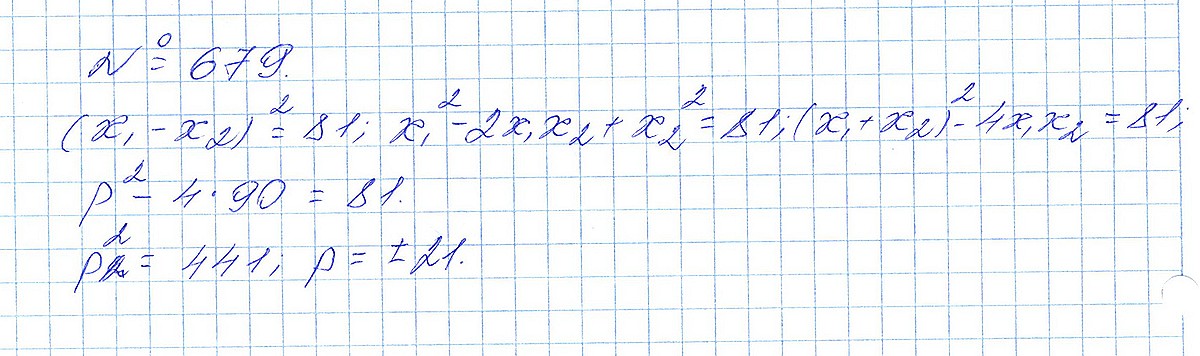 № 679.
(x₁ - x₂)² = 81; x₁² - 2x₁x₂ + x₂² = 81; (x₁ + x₂)² - 4x₁x₂ = 81;
p² - 4·90 = 81.
p² = 441; p = ±21.